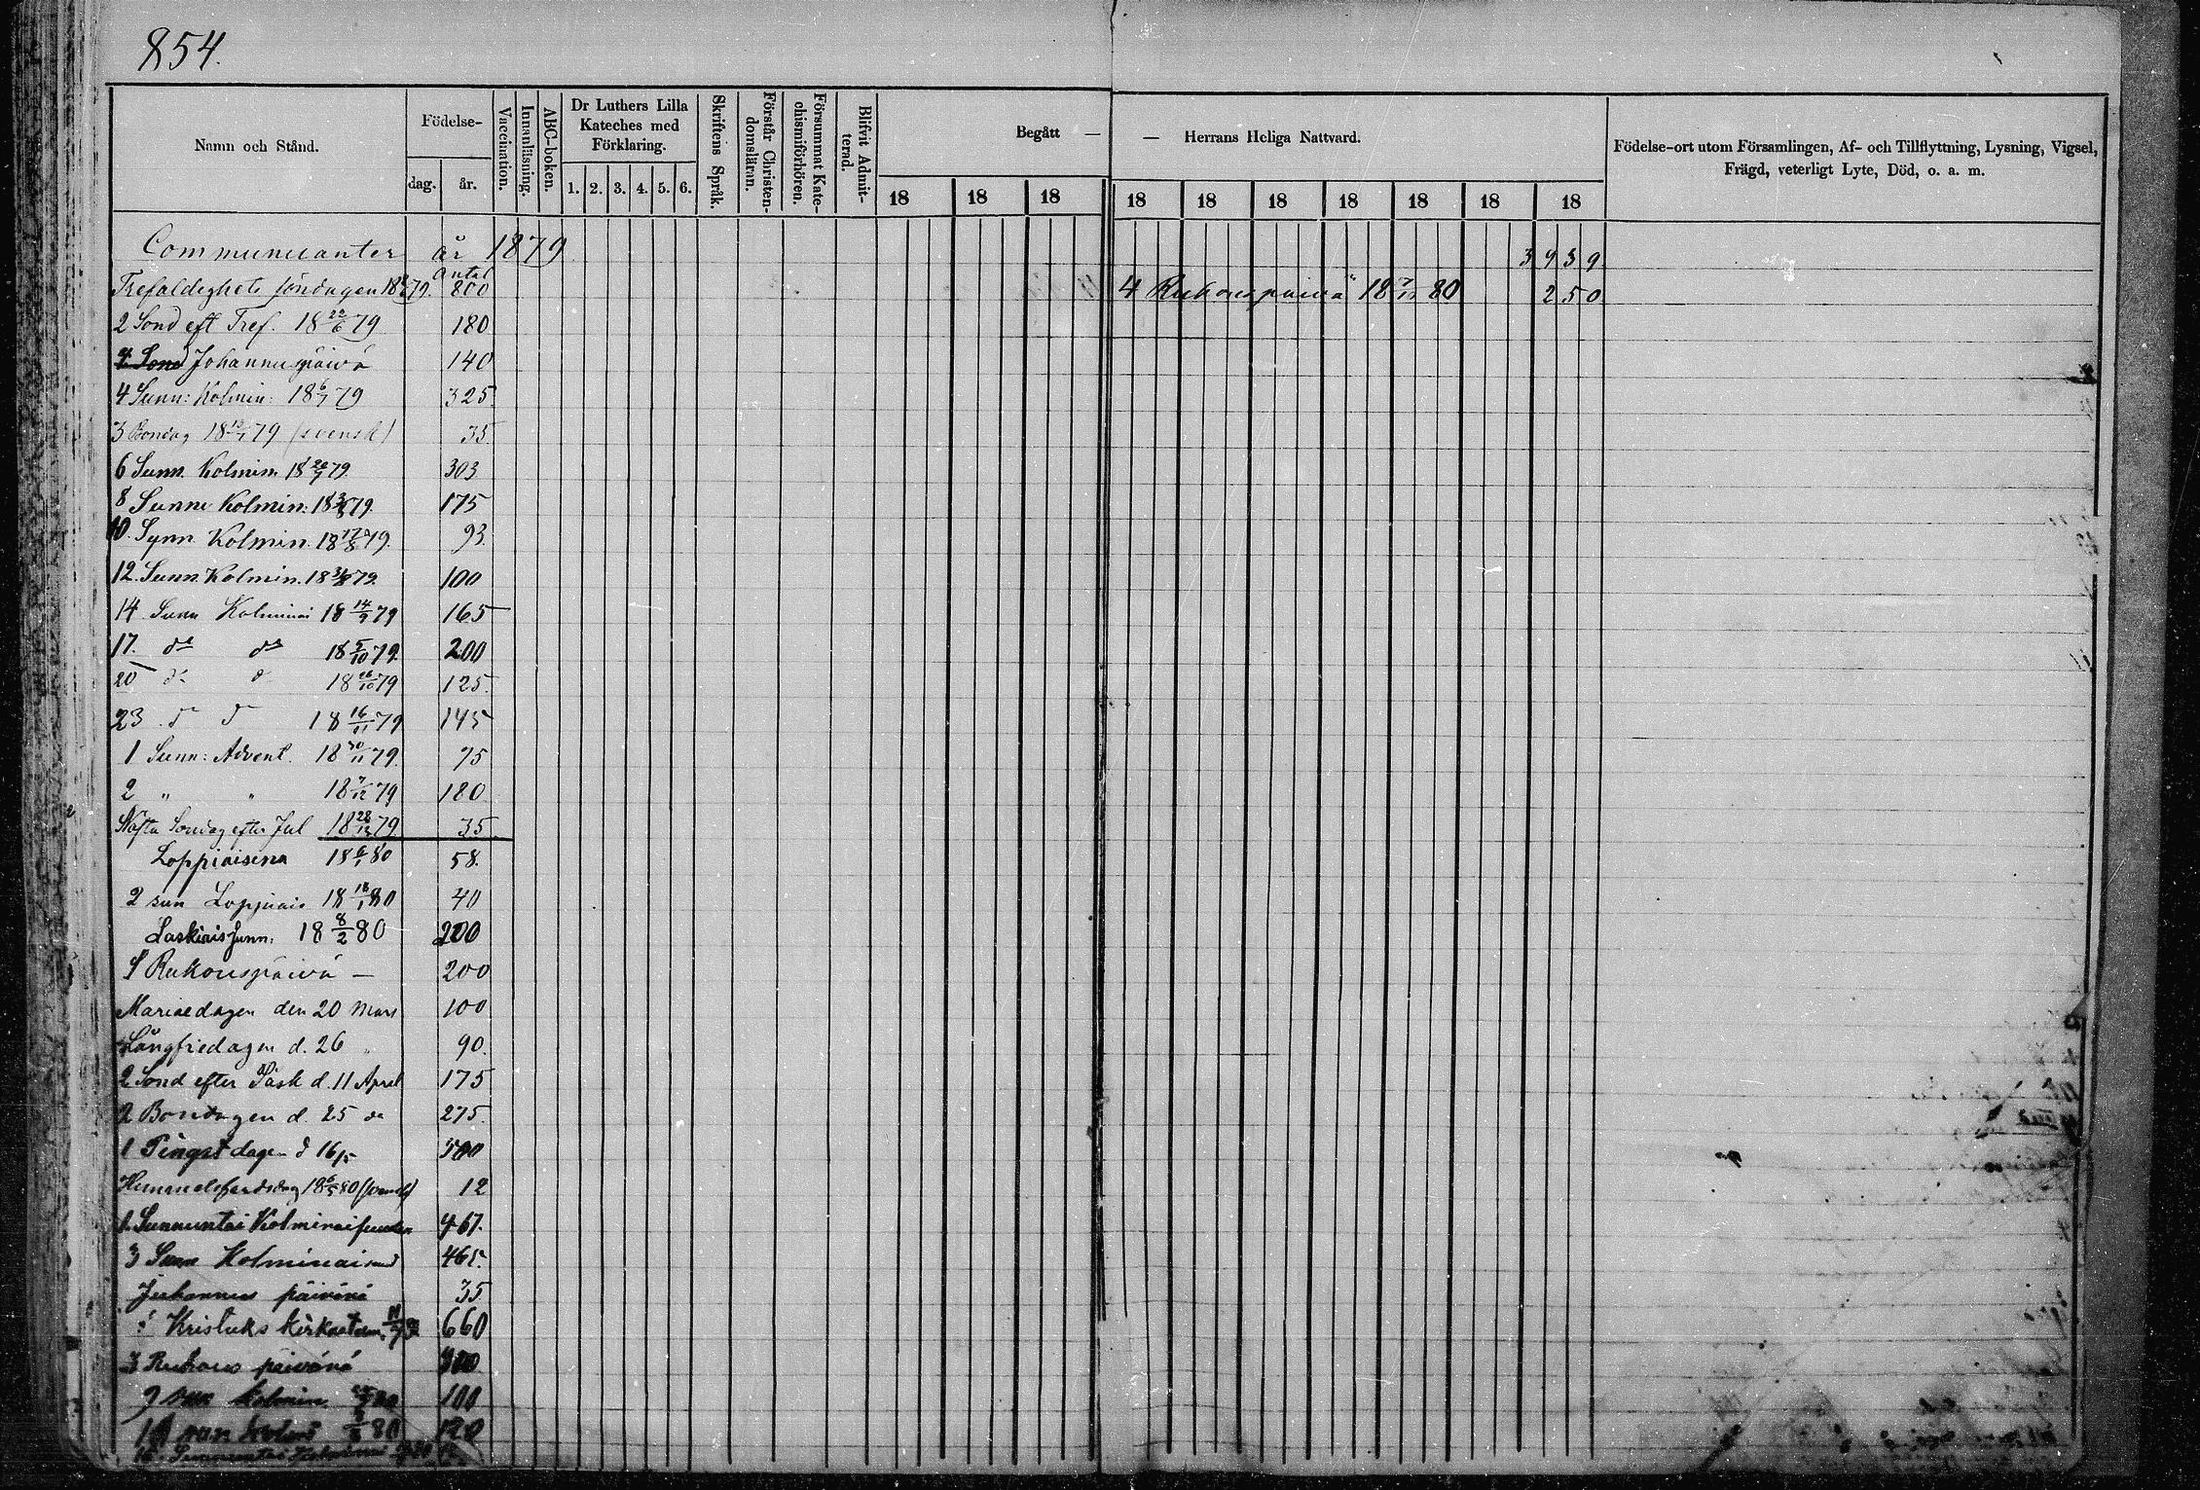 854.
Namn och Stånd.
Födelse-
dag.
år.
Vaccination.
Innanläsning.
ABC-boken.
Dr Luthers Lilla
Kateches med
Förklaring.
1. 2. 3. 4. 5. 6.
Skriftens Språk.
Förstår Christen-
domsläran.
Försummat Kate-
chismiförhören.
Blifvit Admit-
terad.
Begått —
— Herrans Heliga Nattvard.
18 18 18 18 18 18 18 18 18 18
Födelse-ort utom Församlingen, Af- och Tillflyttning, Lysning, Vigsel,
Frägd, veterligt Lyte, Död, o. a. m.
Communicanter år 1879
3939
Antal
Trefaldighets söndagen 18 79. 800
4 Rukouspäivä 18 7/11 80 250
2 Sönd eft Tref. 18 22/6 79 180
Johannuspäivä 140
4 Sunn: Kolmin: 18 6/7 79 325
3 Böndag 18 13/7 79 (svensk) 35
6 Sunn. Kolmin 18 20/7 79. 303
8 Sunn Kolmin: 18 3/8 79. 175
10. Synn Kolmin. 18 17/8 79. 93.
12. Sunn Kolmin. 18 31/8 79. 100
14 Sunn Kolminai 18 14/9 79 165
17. do do 18 5/10 79. 200
20 do do 18 26/10 79 125.
23. do do 18 16/11 79 145
1 Sunn: Advent. 18 30/11 79. 75
2 " " 18 7/12 79 180
Nästa Söndag efter Jul 18 28/12 79 35
Loppiaisena 18 6/1 80 58.
2 sun Loppiais 18 18/1 80 40
Laskiais sunn: 18 8/2 80 200
1 Rukouspäivä — 200
Mariaedagen den 20 Mars 100
Långfredagen d. 26 " 90.
2 Sönd efter Påsk d. 11 April 175
2 Böndagen d. 25 do 275.
1 Pingstdagen d 16/5 300
Himmelsfärdsdag 18 6/5 80 (svensk) 12
1. Sunnuntai Kolminaisuuden 467.
3 Sunn Kolminaisuud 465.
Juhannus päivänä 35
Kristuks kirkastam. 11/7 80 660
3 Rukous päivänä 300
9 sun kolmin. 80 100
sun kolmi 80 120
Sunnuntai Kolminai